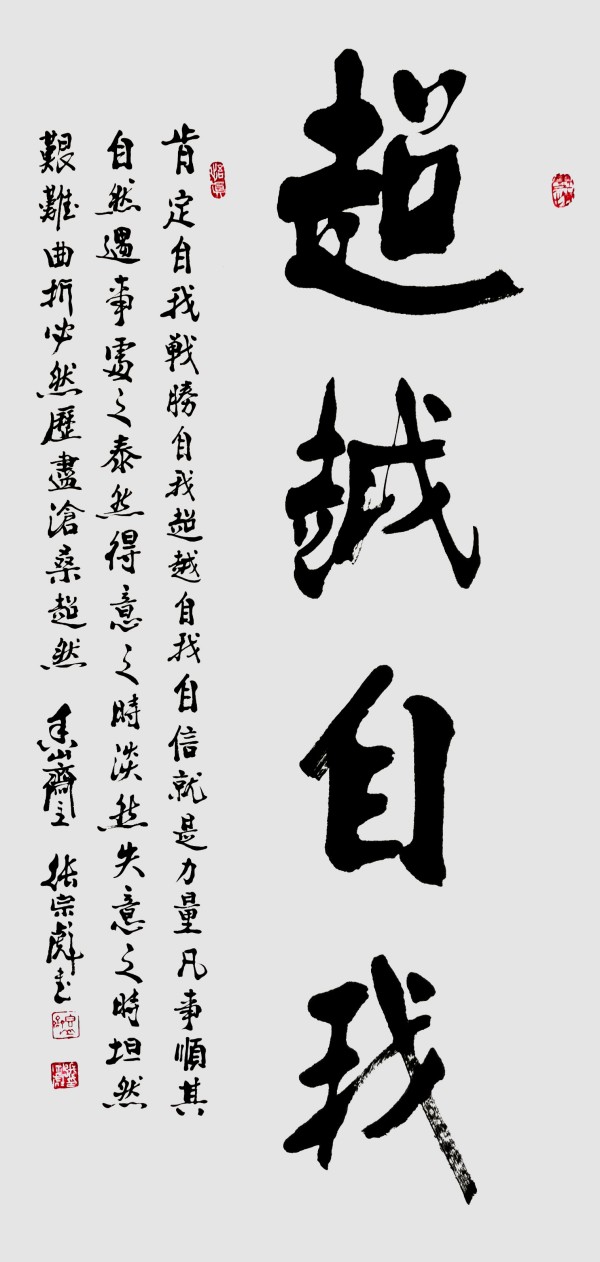 超越自我
肯定自我戰勝自我超越自我自信就是力量凡事順其
自然遇事處之泰然得意之時淡然失意之時坦然
艱難曲折必然歷盡滄桑超然 香山齋主 張宗彪書